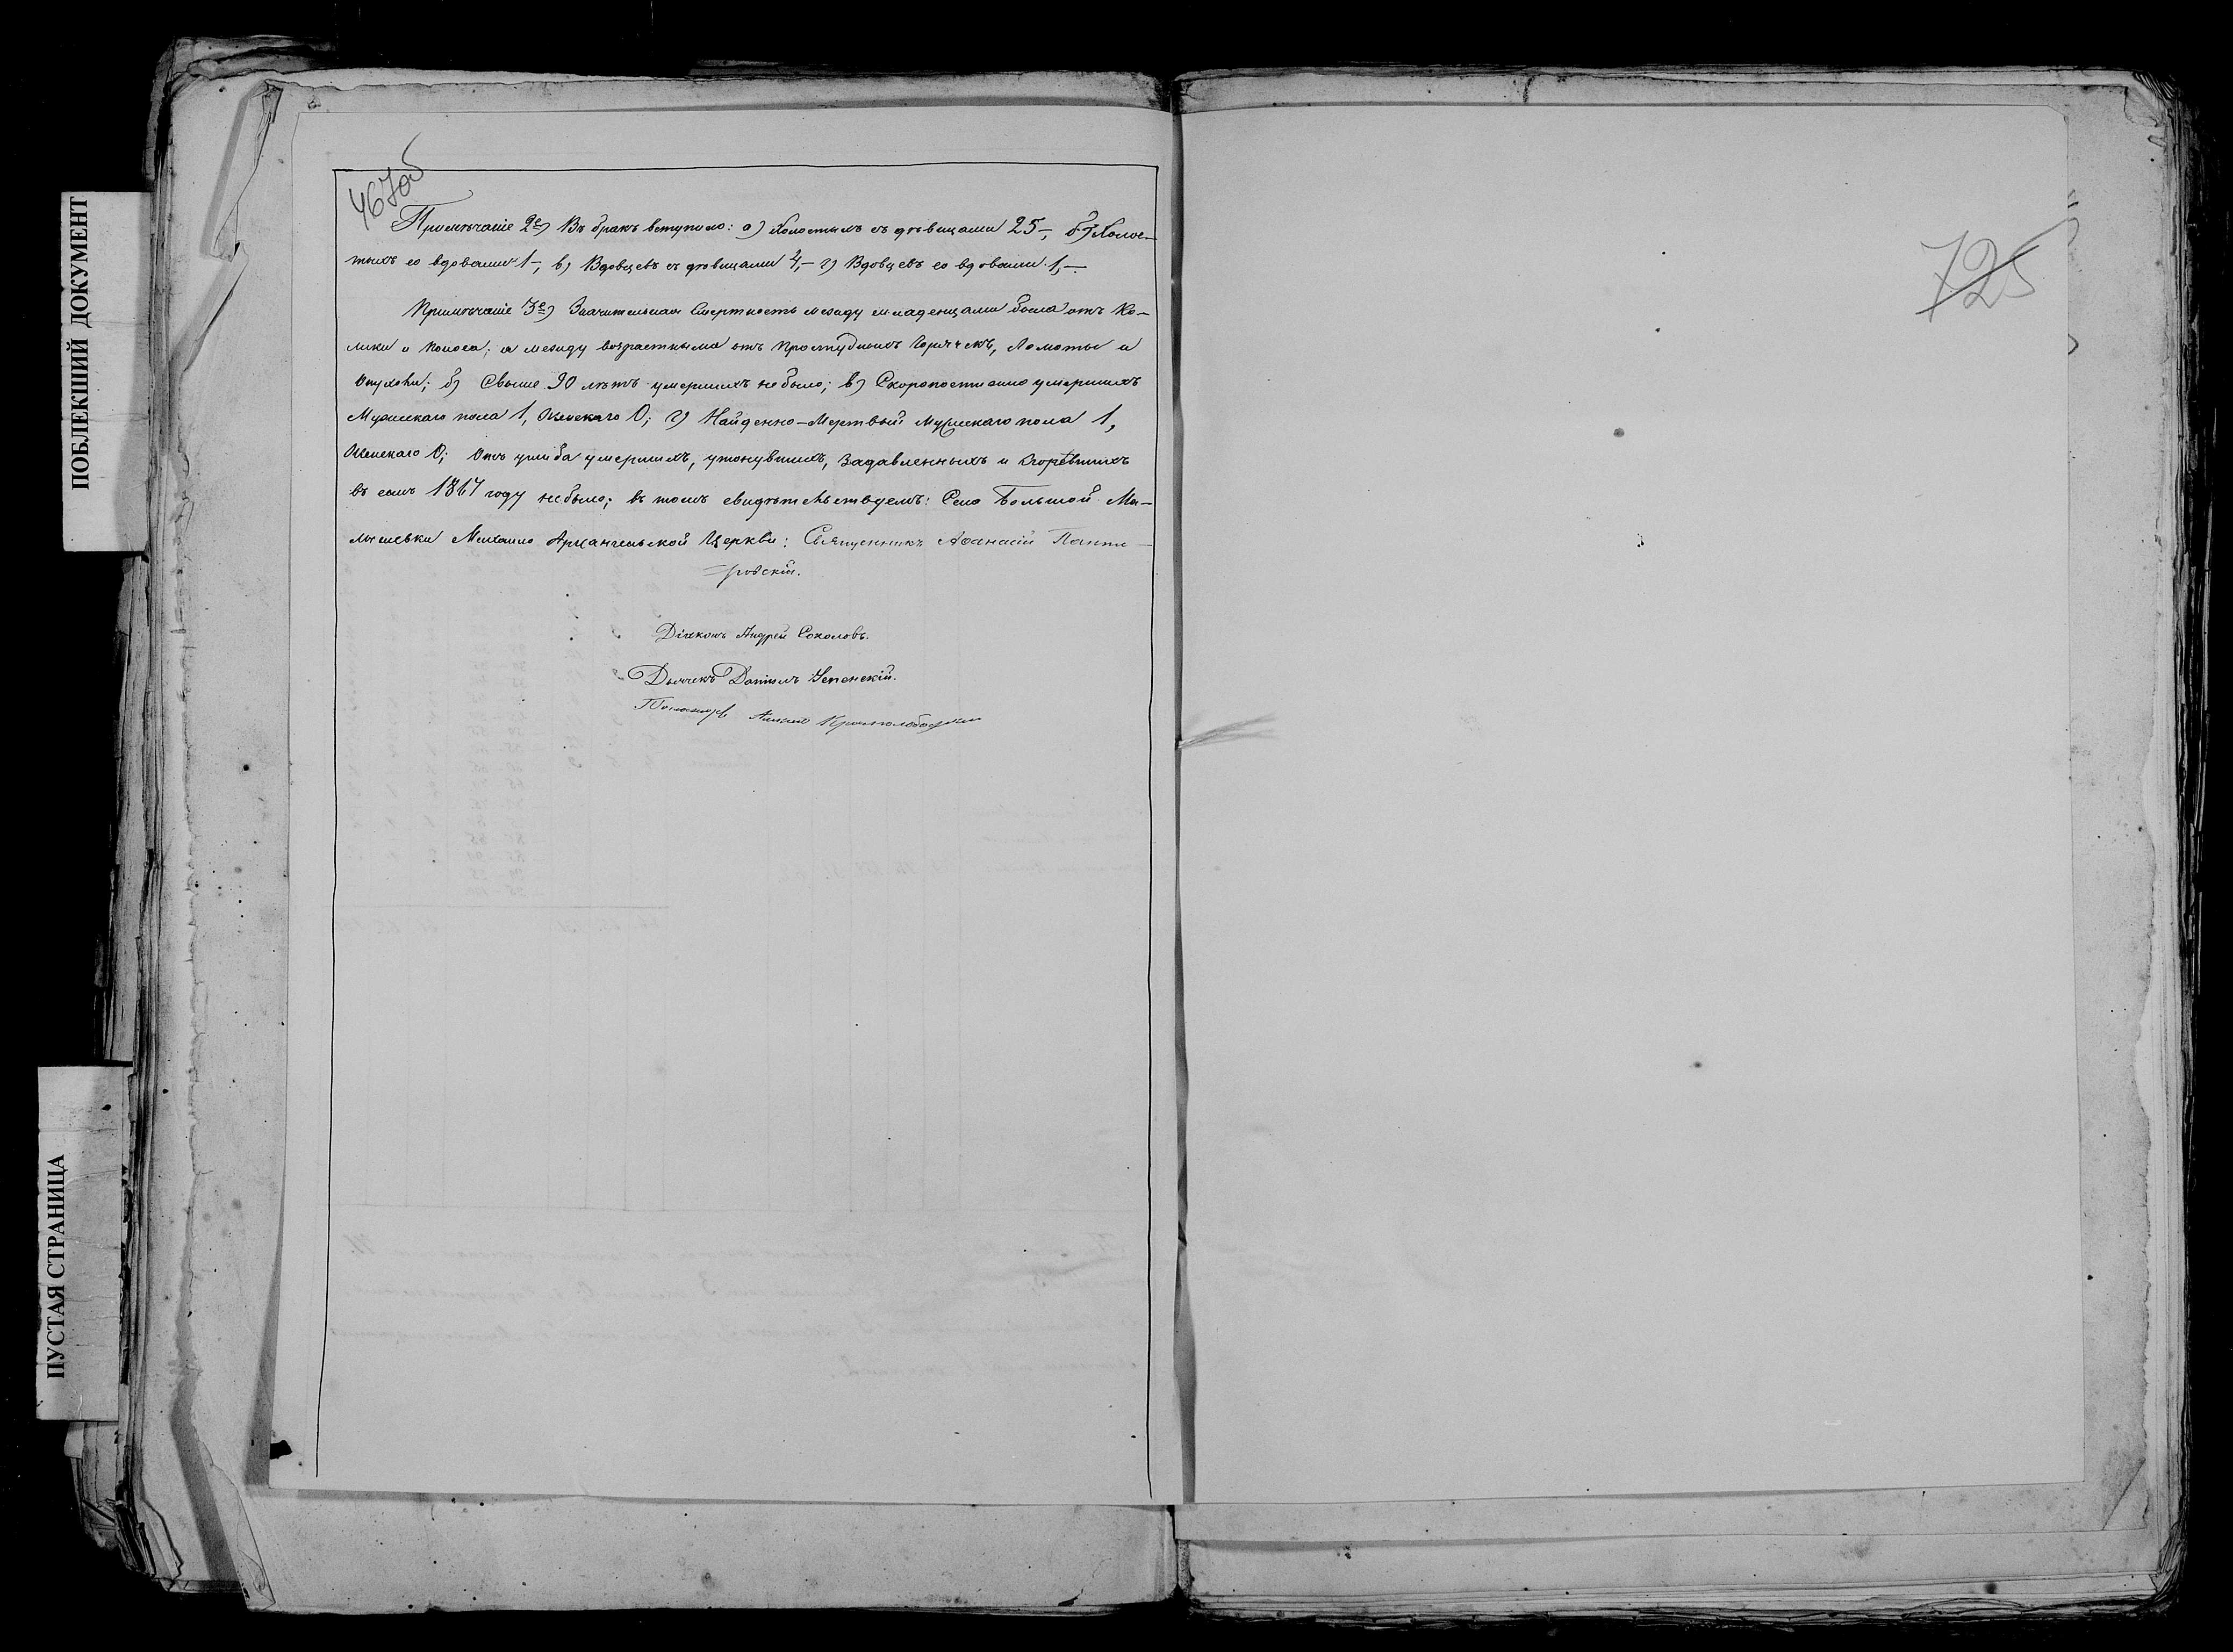 ПОБЛЕКШИЙ ДОКУМЕНТ
ПУСТАЯ СТРАНИЦА
467об
Примѣчаніе 2е) Въ бракъ вступило: а) Холостыхъ съ дѣвицами 25–, б) Холос–
тыхъ со вдовами 1–, в) Вдовцевъ съ дѣвицами 4,– г) Вдовцевъ со вдовами 1,–
Примѣчаніе 3е) Значительная Смертность между младенцами была отъ Ко–
лики и поноса; а между возрастными отъ простудныхъ Горячекъ, Ломоты и
Опухоли; б) Свыше 90 лѣтъ умершихъ не было; в) Скоропостижно умершихъ
Мужескаго пола 1, Женскаго 0; г) Найденно–Мертвый мужескаго пола 1,
Женскаго 0; Отъ ушиба умершихъ, утонувшихъ, задавленныхъ и сгорѣвшихъ
въ семъ 1867 году не было; въ томъ свидѣтельствуемъ: Села Большой Ма–
лышевки Михаило Архангельской Церкви: Священникъ Аѳанасій
ровскій.
Діаконъ Андрей Соколовъ.
Дьячекъ Даніилъ Успенскій.
Пономарь
725